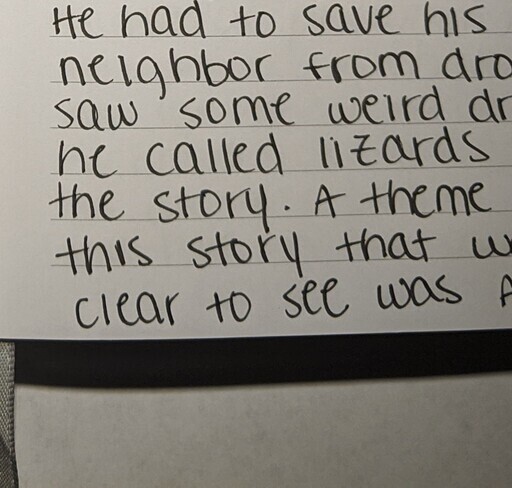 He had to save his
neighbor from dro
saw some weird dr
he called lizards
the story. A theme
this story that w
clear to see was A